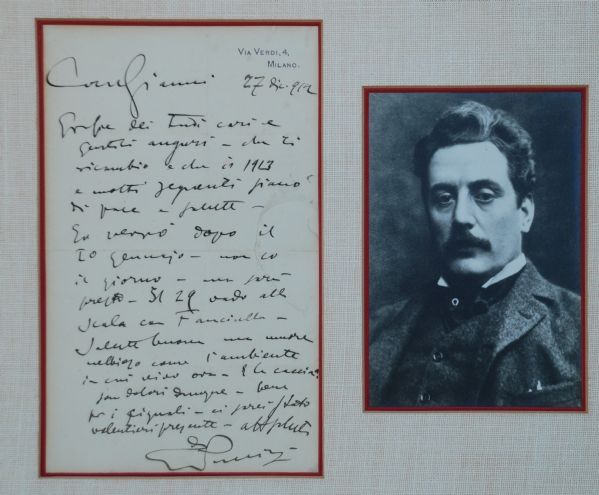 VIA VERDI, 4,
MILANO.
Caro Gianni
27 dic. 912
Grazie dei tuoi cari e
gentili auguri - che ti
ricambio e che il 1913
e molti seguenti siano
di pace e salute -
Io verrò dopo il
10 gennajo - non so
il giorno - ma sarà
presto - il 29 vado alla
Scala con Fanciulla -
Salute buona ma umore
nebbioso come l'ambiente
in cui vivo ora - E la caccia?
son dolori dunque - bene
per i fignoli - ci sarei stato
volentieri presente - aff saluti
da
Puccini